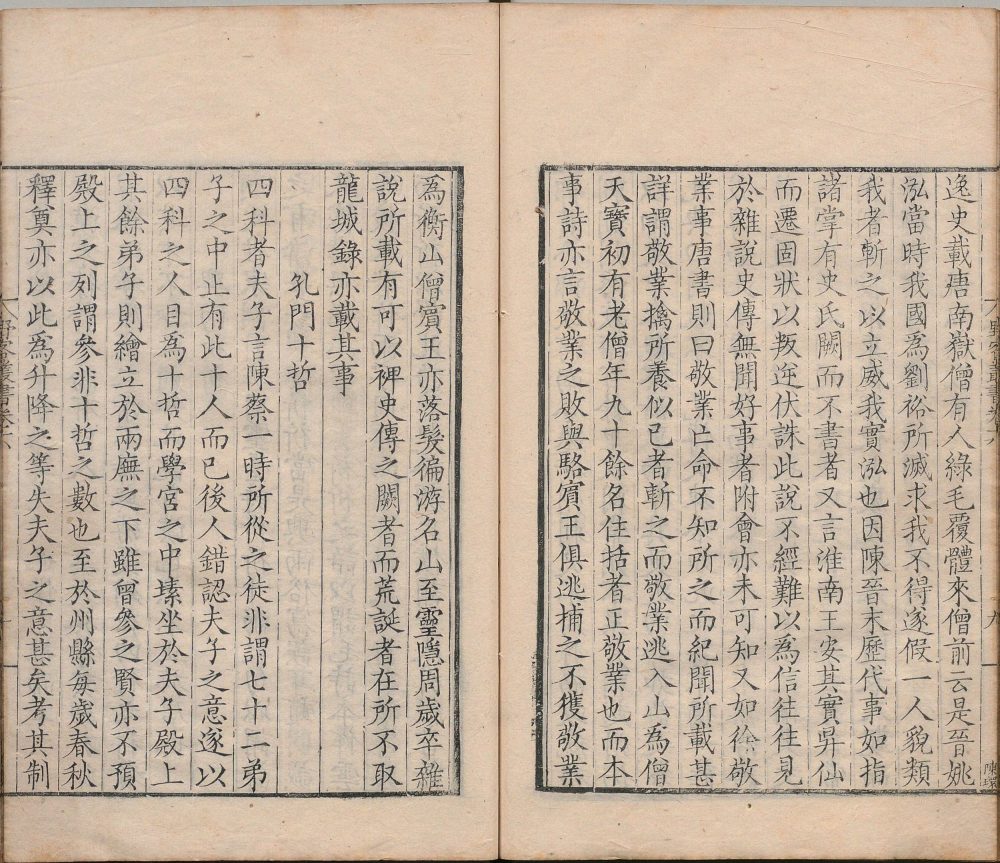 逸史載唐南嶽僧有人綠毛覆體來僧前云是晉姚
泓當時我國為劉裕所滅求我不得遂假一人貌類
我者斬之以立威我實泓也因陳晉末歷代事如指
諸掌有史氏闕而不書者又言淮南王安其實昇仙
而遷固狀以叛逆伏誅此說不經難以為信往往見
於雜說史傳無聞好事者附會亦未可知又如徐敬
業事唐書則曰敬業亡命不知所之而紀聞所載甚
詳謂敬業擒所養似己者斬之而敬業逃入山為僧
天寶初有老僧年九十餘名住括者正敬業也而本
事詩亦言敬業之敗與駱賓王俱逃捕之不獲敬業
為衡山僧賓王亦落髮徧游名山至靈隱周歲卒雜
說所載有可以裨史傳之闕者而荒誕者在所不取
龍城錄亦載其事
孔門十哲
四科者夫子言陳蔡一時所從之徒非謂七十二弟
子之中止有此十人而已後人錯認夫子之意遂以
四科之人目為十哲而學宮之中塐坐於夫子殿上
其餘弟子則繪立於兩廡之下雖曾參之賢亦不預
殿上之列謂參非十哲之數也至於州縣每歲春秋
釋奠亦以此為升降之等失夫子之意甚矣考其制